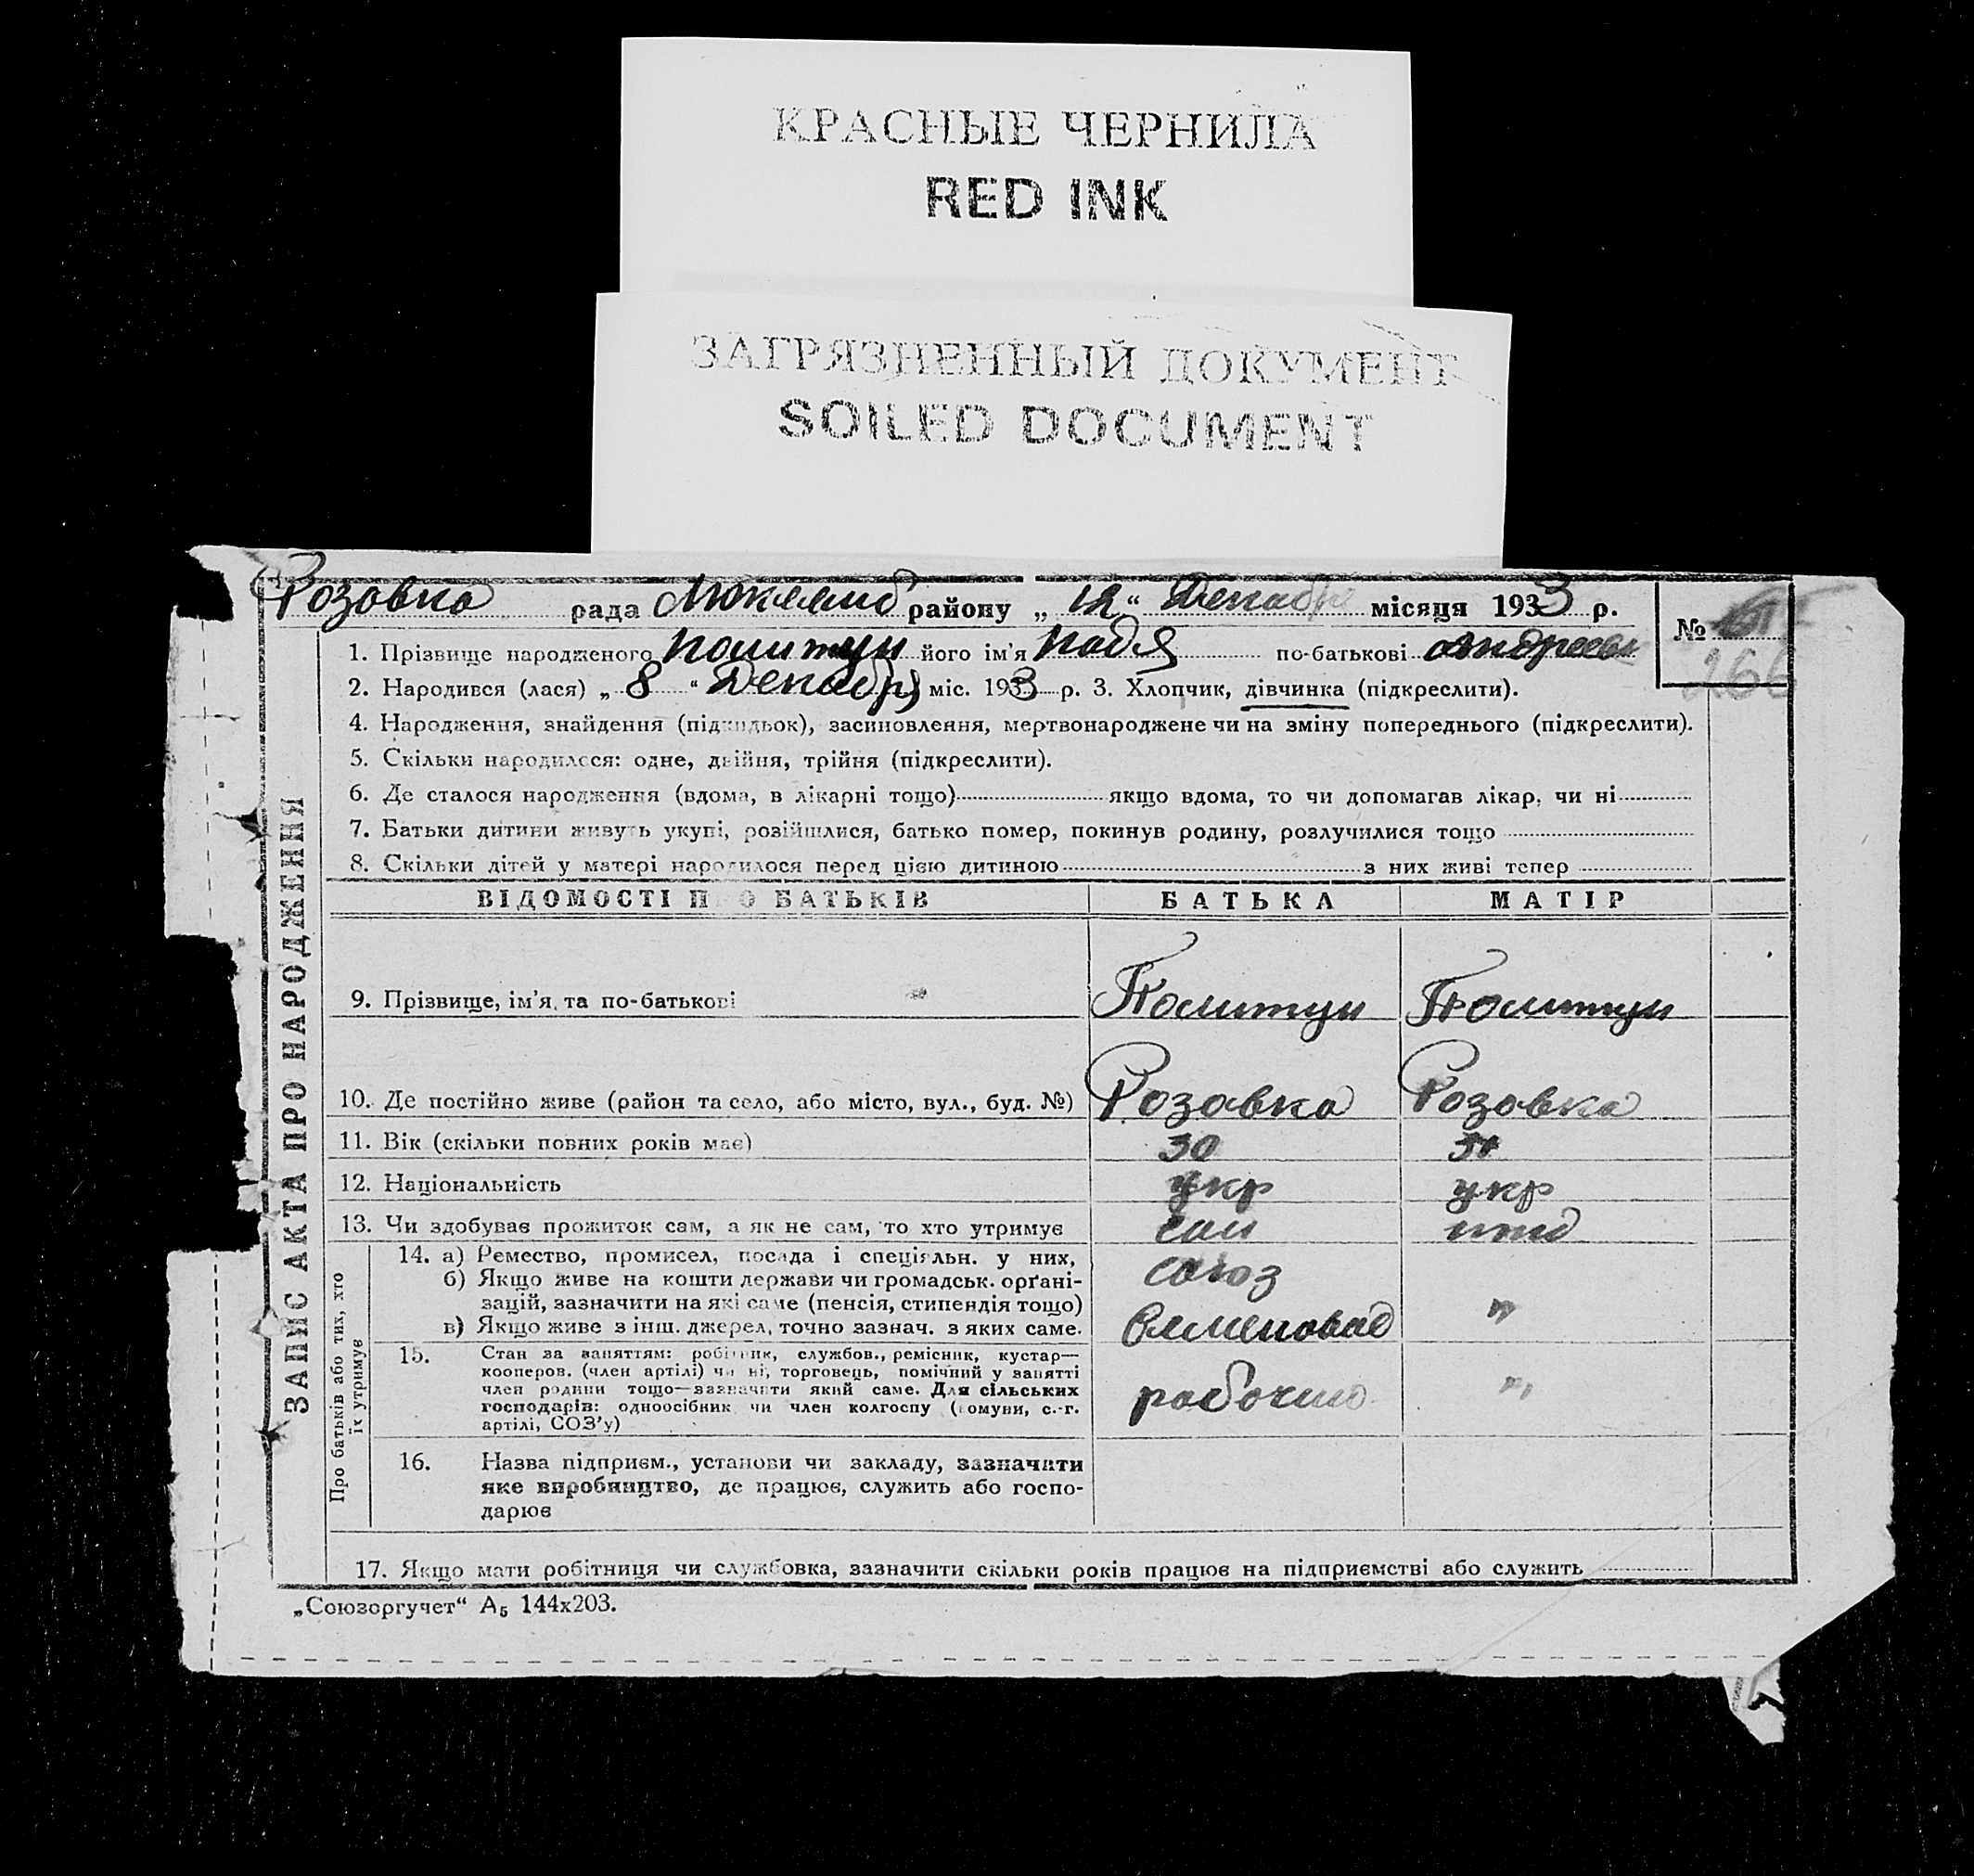 КРАСНЫЕ ЧЕРНИЛА
RED INK
ЗАГРЯЗНЕННЫЙ ДОКУМЕНТ
SOILED DOCUMENT
Розовка рада району „ 12 “ Декабр місяця 1933 р.
№
266
ЗАПИС АКТА ПРО НАРОДЖЕННЯ
1. Прізвище народженого його ім'я Надя по-батькові
2. Народився (лася) „ 8 “ Декабря міс. 1933 р. 3. Хлопчик, дівчинка (підкреслити).
4. Народження, знайдення (підкидьок), засиновлення, мертвонароджене чи на зміну попереднього (підкреслити).
5. Скільки народилося: одне, двійня, трійня (підкреслити).
6. Де сталося народження (вдома, в лікарні тощо) якщо вдома, то чи допомагав лікар, чи ні
7. Батьки дитини живуть укупі, розійшлися, батько помер, покинув родину, розлучилися тощо
8. Скільки дітей у матері народилося перед цією дитиною з них живі тепер
ВІДОМОСТІ ПРО БАТЬКІВ БАТЬКА МАТІР
9. Прізвище, ім'я та по-батькові
10. Де постійно живе (район та село, або місто, вул., буд. №) Розовка Розовка
11. Вік (скільки повних років має) 30
12. Національність укр укр
13. Чи здобуває прожиток сам, а як не сам, то хто утримує сам
Про батьків або тих, хто
їх утримує
14. а) Ремество, промисел, посада і спеціяльн. у них, союз
б) Якщо живе на кошти держави чи громадськ. орґані-
зацій, зазначити на які саме (пенсія, стипендія тощо) "
в) Якщо живе з інш. джерел, точно зазнач. з яких саме.
15. Стан за заняттям: робітник, службов., ремісник, кустар—
кооперов. (член артілі) чи ні, торговець, помічний у занятті
член родини тощо—зазначити який саме. Для сільських рабочий "
господарів: одноосібник чи член колгоспу (комуни, с.-г.
артілі, СОЗ'у)
16. Назва підприєм., установи чи закладу, зазначити
яке виробництво, де працює, служить або госпо-
дарює
17. Якщо мати робітниця чи службовка, зазначити скільки років працює на підприємстві або служить
„Союзоргучет“ А5 144х203.